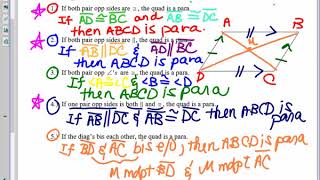 1. If both pair opp sides are ≅, the quad is a para.
If AD ≅ BC and AB ≅ DC
then ABCD is para
2. If both pair opp sides are ∥, the quad is a para.
If AB ∥ DC and AD ∥ BC
then ABCD is para
3. If both pair opp ∠'s are ≅, the quad is a para.
If <A ≅ <C & <B ≅ <D
then ABCD is para
4. If one pair opp sides is both ∥ and ≅, the quad is a para.
If AB ∥ DC & AB ≅ DC then ABCD is para
5. If the diag's bis each other, the quad is a para.
If BD & AC bis e/o, then ABCD is para
M mdpt BD & M mdpt AC
A
B
M
D
C